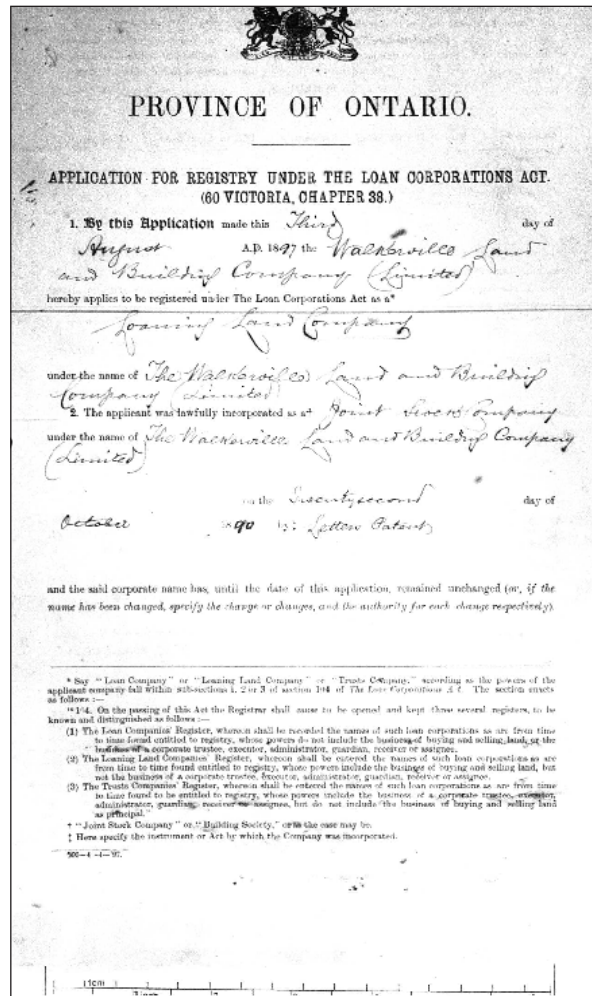 PROVINCE OF ONTARIO.
APPLICATION FOR REGISTRY UNDER THE LOAN CORPORATIONS ACT.
(60 VICTORIA, CHAPTER 38.)
1. By this Application made this Third day of
August A.D. 1897 the Walkerville Land
and Building Company (Limited)
hereby applies to be registered under The Loan Corporations Act as a*
Loaning Land Company
under the name of The Walkerville Land and Building
Company (Limited)
2. The applicant was lawfully incorporated as a† Joint Stock Company
under the name of The Walkerville Land and Building Company
(Limited)
on the Twenty second day of
October 1890 by‡ Letters Patent
and the said corporate name has, until the date of this application, remained unchanged (or, if the
name has been changed, specify the change or changes, and the authority for each change respectively).
* Say "Loan Company" or "Loaning Land Company" or "Trusts Company," according as the powers of the
applicant company fall within sub-sections 1, 2 or 3 of section 104 of The Loan Corporations Act. The section enacts
as follows :—
"104. On the passing of this Act the Registrar shall cause to be opened and kept three several registers, to be
known and distinguished as follows :—
(1) The Loan Companies' Register, whereon shall be recorded the names of such loan corporations as are from time
to time found entitled to registry, whose powers do not include the business of buying and selling land, or the
business of a corporate trustee, executor, administrator, guardian, receiver or assignee.
(2) The Loaning Land Companies' Register, whereon shall be entered the names of such loan corporations as are
from time to time found entitled to registry, whose powers include the business of buying and selling land, but
not the business of a corporate trustee, executor, administrator, guardian, receiver or assignee.
(3) The Trusts Companies' Register, whereon shall be entered the names of such loan corporations as are from time
to time found to be entitled to registry, whose powers include the business of a corporate trustee, executor,
administrator, guardian, receiver or assignee, but do not include the business of buying and selling land
as principal."
† "Joint Stock Company" or, "Building Society," or as the case may be.
‡ Here specify the instrument or Act by which the Company was incorporated.
1cm